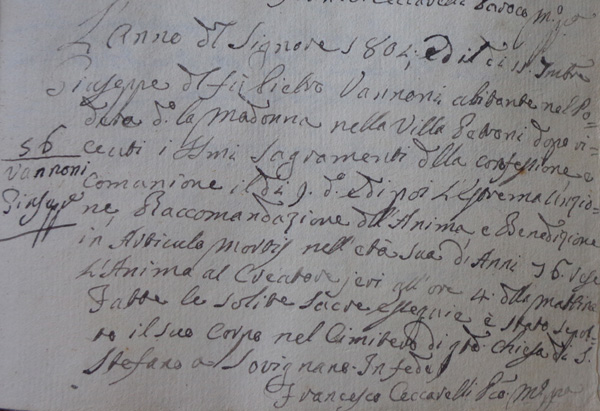 Francesco Ceccarelli Paroco m.º pp.ª
L'Anno dl Signore 1804, ed il dì 11 9mbre
Giuseppe dl fù Pietro Vannoni abitante nel Po=
dere d.º la Madonna nella Villa Petroni dopo ri=
56
ceuti i SSmi Sagramenti dlla confessione e
Vannoni
comunione il dì 9 d.º e di poi l'Estrema Unzio=
Giuseppe
ne, Raccomandazione dll'Anima, e Benedizione
in Articulo Mortis nell'età sua di Anni 56. rese
L'Anima al Creatore jeri all'ore 4. dlla mattina
Fatte le solite sacre esequie è stato sepol=
to il suo Corpo nel Cimitero di qta Chiesa di S.
Stefano a Sovignano. In fede
Francesco Ceccarelli Pco. m.º pp.ª